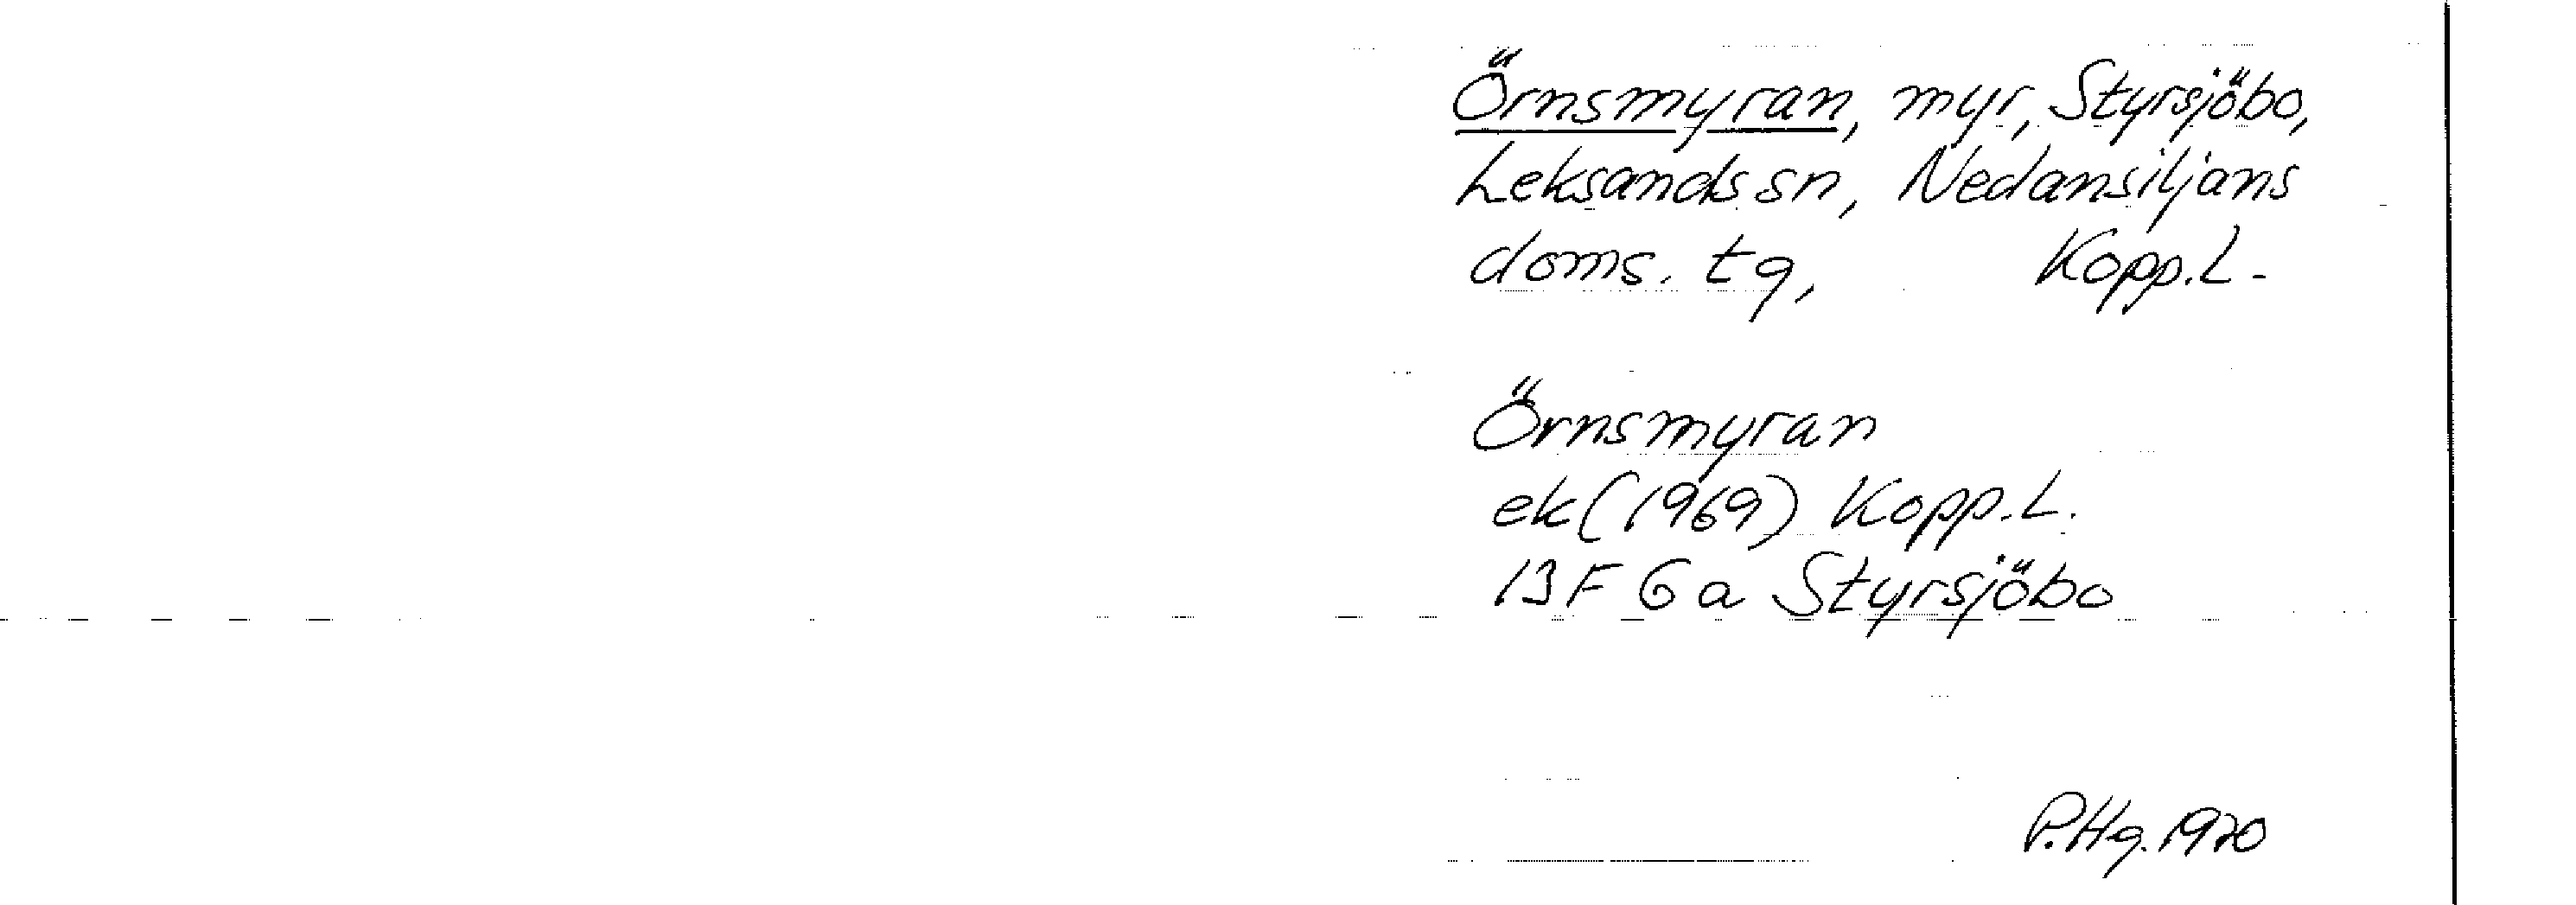 Örnsmyran, myr, Styrsjöbo,
Leksands sn, Nedansiljans
doms. tg, Kopp.L.
Örnsmyran
ek (1969) Kopp.L.
13F 6a Styrsjöbo
P.Hg. 1970